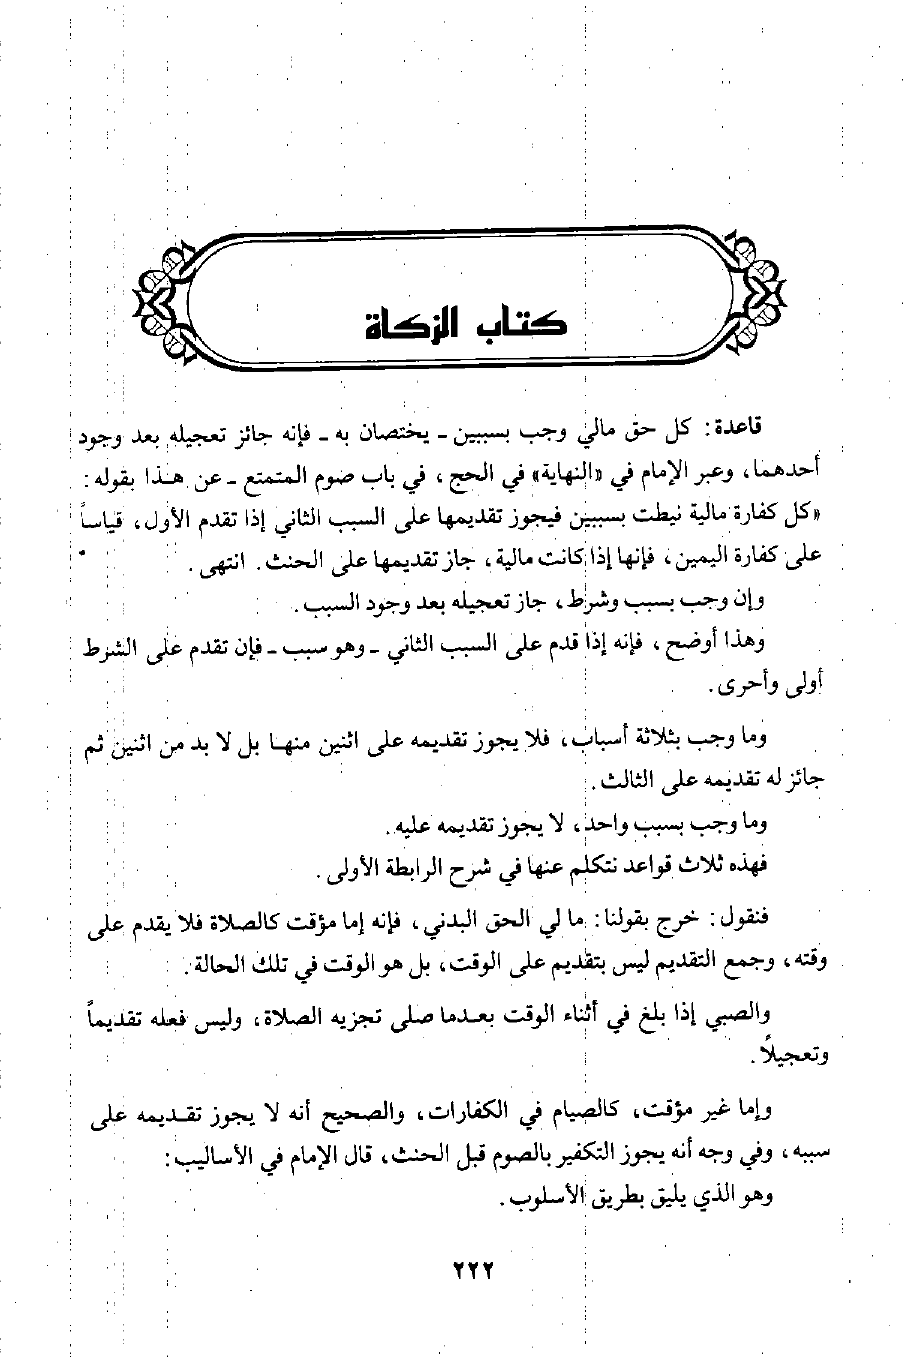 كتاب الزكاة
قاعدة: كل حق مالي وجب بسببين - يختصان به - فإنه جائز تعجيله بعد وجود
أحدهما، وعبر الإمام في «النهاية» في الحج، في باب صوم المتمتع - عن هذا بقوله:
«كل كفارة مالية نيطت بسببين فيجوز تقديمها على السبب الثاني إذا تقدم الأول، قياساً
على كفارة اليمين، فإنها إذا كانت مالية، جاز تقديمها على الحنث. انتهى.
وإن وجب بسبب وشرط، جاز تعجيله بعد وجود السبب.
وهذا أوضح، فإنه إذا قدم على السبب الثاني - وهو سبب - فإن تقدم على الشرط
أولى وأحرى.
وما وجب بثلاثة أسباب، فلا يجوز تقديمه على اثنين منها بل لا بد من اثنين ثم
جائز له تقديمه على الثالث.
وما وجب بسبب واحد، لا يجوز تقديمه عليه.
فهذه ثلاث قواعد نتكلم عنها في شرح الرابطة الأولى.
فنقول: خرج بقولنا: ما لي الحق البدني، فإنه إما مؤقت كالصلاة فلا يقدم على
وقته، وجمع التقديم ليس بتقديم على الوقت، بل هو الوقت في تلك الحالة.
والصبي إذا بلغ في أثناء الوقت بعدما صلى تجزيه الصلاة، وليس فعله تقديماً
وتعجيلاً.
وإما غير مؤقت، كالصيام في الكفارات، والصحيح أنه لا يجوز تقديمه على
سببه، وفي وجه أنه يجوز التكفير بالصوم قبل الحنث، قال الإمام في الأساليب:
وهو الذي يليق بطريق الأسلوب.
٢٢٢